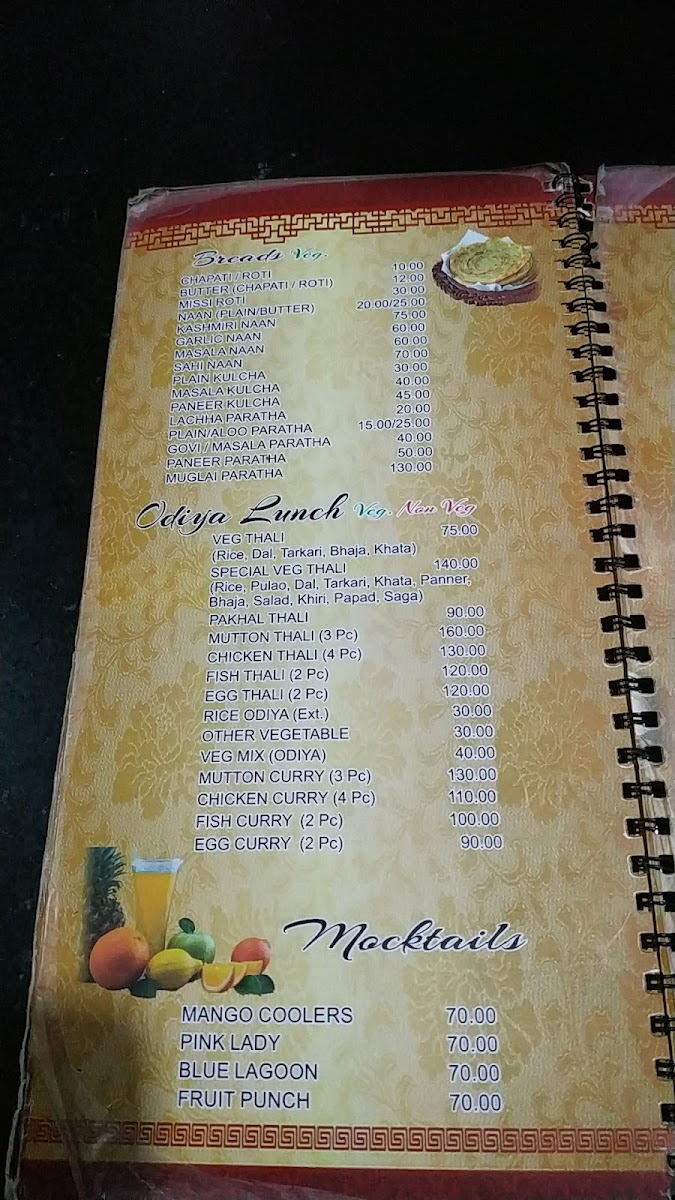 Breads Veg.
CHAPATI / ROTI 10.00
BUTTER (CHAPATI / ROTI) 12.00
MISSI ROTI 30.00
NAAN (PLAIN/BUTTER) 20.00/25.00
KASHMIRI NAAN 75.00
GARLIC NAAN 60.00
MASALA NAAN 60.00
SAHI NAAN 70.00
PLAIN KULCHA 30.00
MASALA KULCHA 40.00
PANEER KULCHA 45.00
LACHHA PARATHA 20.00
PLAIN/ALOO PARATHA 15.00/25.00
GOVI / MASALA PARATHA 40.00
PANEER PARATHA 50.00
MUGLAI PARATHA 130.00
Odiya Lunch Veg. Non Veg
VEG THALI 75.00
(Rice, Dal, Tarkari, Bhaja, Khata)
SPECIAL VEG THALI 140.00
(Rice, Pulao, Dal, Tarkari, Khata, Panner,
Bhaja, Salad, Khiri, Papad, Saga)
PAKHAL THALI 90.00
MUTTON THALI (3 Pc) 160.00
CHICKEN THALI (4 Pc) 130.00
FISH THALI (2 Pc) 120.00
EGG THALI (2 Pc) 120.00
RICE ODIYA (Ext.) 30.00
OTHER VEGETABLE 30.00
VEG MIX (ODIYA) 40.00
MUTTON CURRY (3 Pc) 130.00
CHICKEN CURRY (4 Pc) 110.00
FISH CURRY (2 Pc) 100.00
EGG CURRY (2 Pc) 90.00
Mocktails
MANGO COOLERS 70.00
PINK LADY 70.00
BLUE LAGOON 70.00
FRUIT PUNCH 70.00